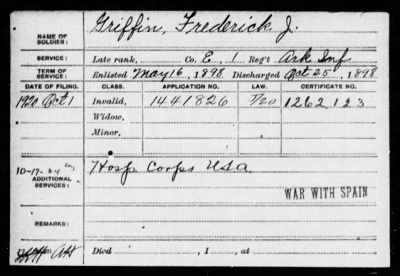 NAME OF SOLDIER: Griffin, Frederick J.
SERVICE: Late rank, Co. E, 1 Reg't Ark Inf
TERM OF SERVICE: Enlisted May 16, 1898 Discharged Oct 25, 1898
DATE OF FILING. CLASS. APPLICATION NO. LAW. CERTIFICATE NO.
1920 Oct 1 Invalid, 1441826 1262123
Widow,
Minor.
10-17-24
ADDITIONAL SERVICES: Hosp Corps USA
WAR WITH SPAIN
REMARKS:
Died , 1 , at